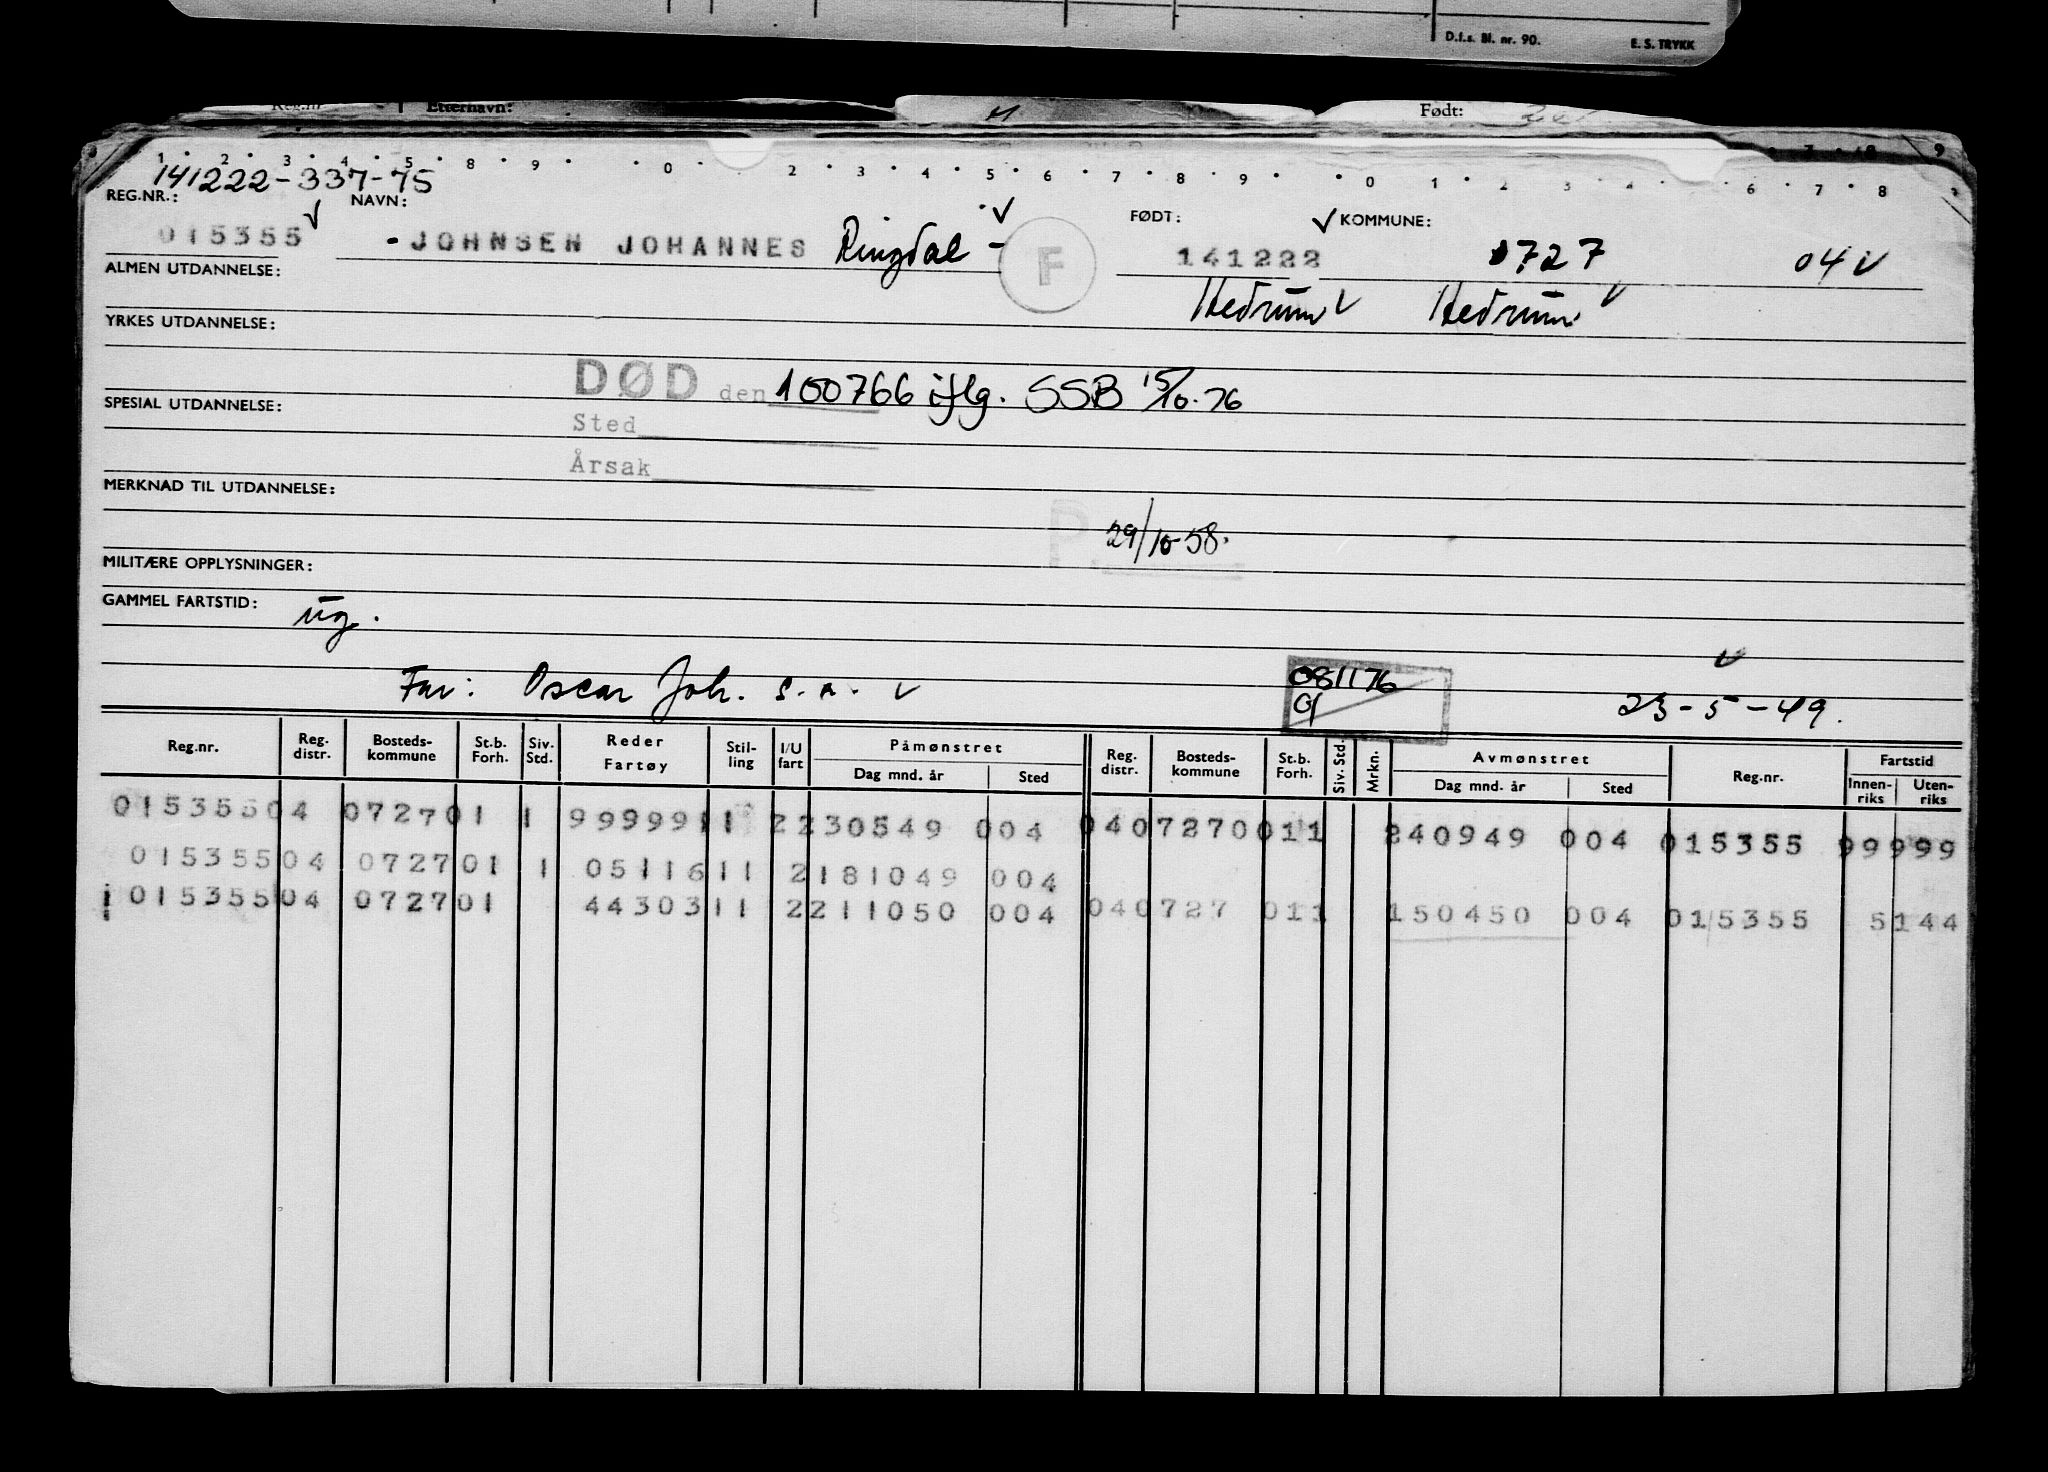 D.f.s. Bl. nr. 90. E. S. TRYKK
Reg.nr. Etternavn: Født:
1 2 3 4 5 8 9 0 2 3 4 5 6 7 8 9 0 1 2 3 4 6 7 8
141222-337-75
REG.NR.: NAVN: FØDT: KOMMUNE:
015355 -JOHNSEN JOHANNES Ringdal - F 141222 0727 04
ALMEN UTDANNELSE:
Hedrum Hedrum
YRKES UTDANNELSE:
DØD den 100766 iflg. SSB 15/10.76
SPESIAL UTDANNELSE:
Sted
Årsak
MERKNAD TIL UTDANNELSE:
P. 29/10-58.
MILITÆRE OPPLYSNINGER:
GAMMEL FARTSTID: ug.
Far: Oscar Joh. s.a. 081176 23-5-49.
Reg.nr. Reg. distr. Bosteds-kommune St.b. Forh. Siv. Std. Reder Fartøy Stil-ling I/U fart Påmønstret Dag mnd. år Sted Reg. distr. Bosteds-kommune St.b. Forh. Siv. Std. Mrkn. Avmønstret Dag mnd. år Sted Reg.nr. Fartstid Innen-riks Uten-riks
015355 04 0727 01 1 99999 11 2 230549 004 04 0727 0011 240949 004 015355 99999
015355 04 0727 01 1 05116 11 2 181049 004
015355 04 0727 01 44303 11 2 211050 004 04 0727 011 150450 004 015355 5144